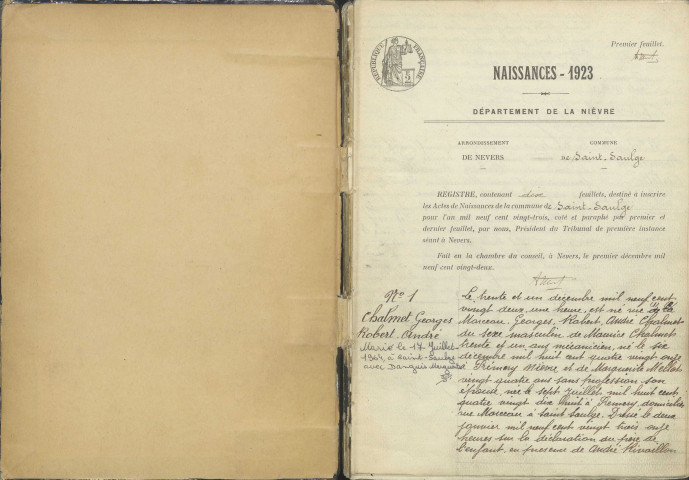 RÉPUBLIQUE FRANÇAISE
Premier feuillet.
NAISSANCES - 1923
DÉPARTEMENT DE LA NIÈVRE
ARRONDISSEMENT
DE NEVERS
COMMUNE
DE Saint-Saulge
REGISTRE, contenant feuillets, destiné à inscrire
les Actes de Naissances de la commune de Saint-Saulge
pour l'an mil neuf cent vingt-trois, coté et paraphé par premier et
dernier feuillet, par nous, Président du Tribunal de première instance
séant à Nevers.
Fait en la chambre du conseil, à Nevers, le premier décembre mil
neuf cent vingt-deux.
No 1
Chalmet Georges
Robert André
Marié le 17 Juillet
à Saint-Saulge
avec
Le trente et un décembre mil neuf cent
vingt deux, une heure, est né rue
Marceau, Georges, Robert, André Chalmet
du sexe masculin de Maurice Chalmet
trente et un ans mécanicien, né le six
décembre mil huit cent quatre vingt onze
à Frémery Nièvre et de Marguerite Mellot
vingt quatre ans sans profession son
épouse, née le sept juillet mil huit cent
quatre vingt dix huit à Frémery, domiciliés
rue Marceau à Saint Saulge. Dressé le deux
janvier mil neuf cent vingt trois onze
heures sur la déclaration du père de
l'enfant, en présence de André